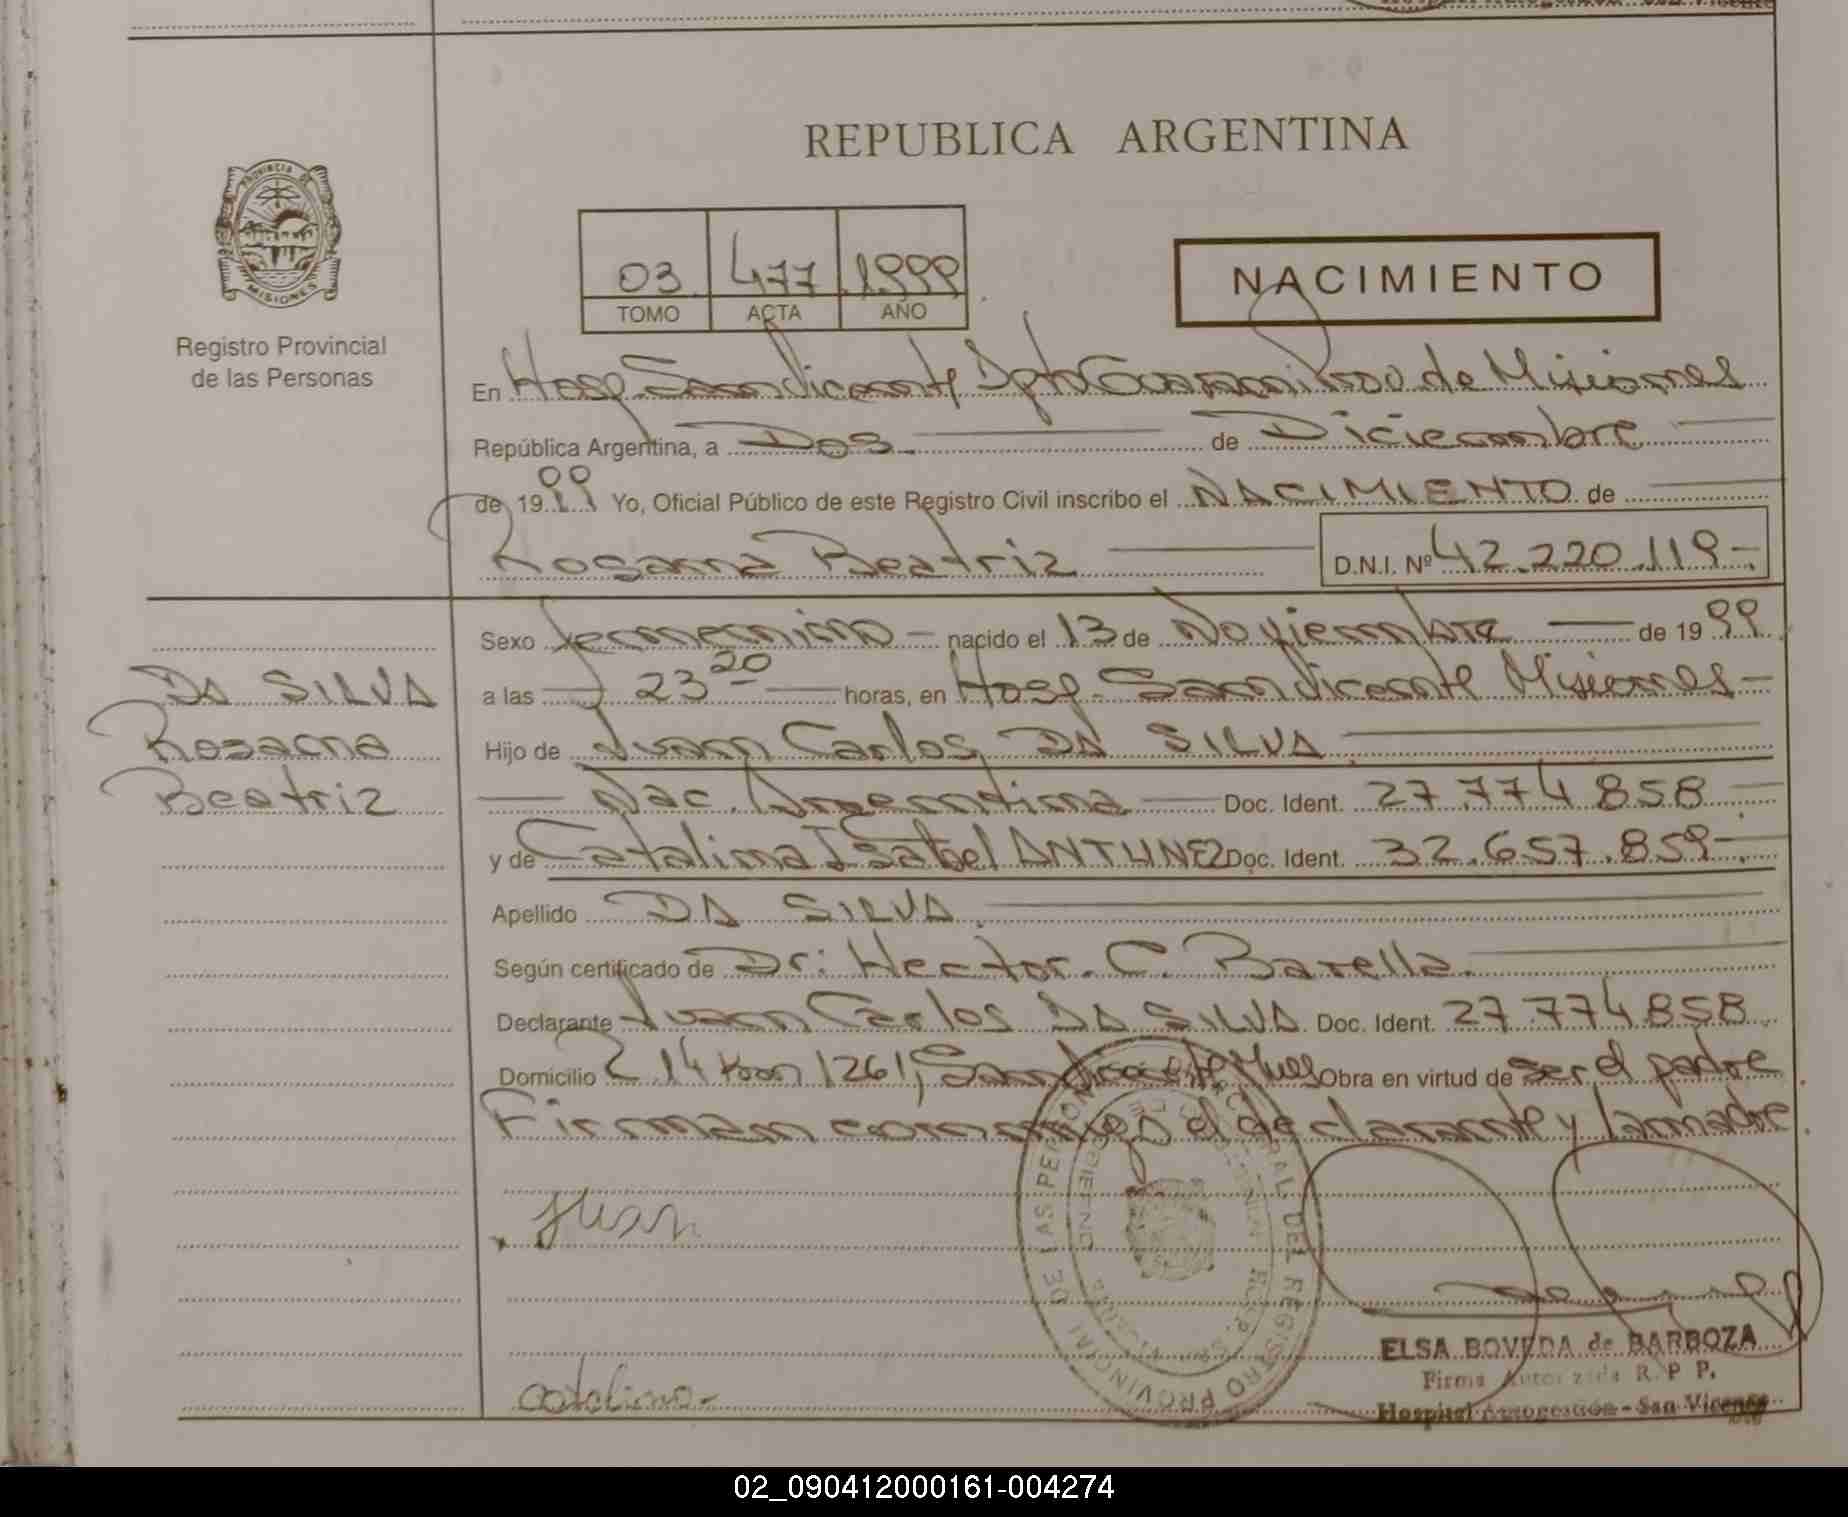 REPUBLICA ARGENTINA
PROVINCIA DE
MISIONES
Registro Provincial
de las Personas
03 477 1999
TOMO ACTA AÑO
NACIMIENTO
En Hosp. San Vicente Dpto Guaraní Prov de Misiones
República Argentina, a Dos de Diciembre
de 1999 Yo, Oficial Público de este Registro Civil inscribo el NACIMIENTO de
Rosana Beatriz D.N.I. Nº 42.220.119.-
DA SILVA
Rosana
Beatriz
Sexo femenino - nacido el 13 de Noviembre de 1999
a las 23 20 horas, en Hosp. San Vicente Misiones -
Hijo de Juan Carlos DA SILVA
Nac. Argentina Doc. Ident. 27.774.858
y de Catalina Isabel ANTUNEZ Doc. Ident. 32.657.859-.
Apellido DA SILVA
Según certificado de Dr: Hector. C. Barella.
Declarante Juan Carlos DA SILVA Doc. Ident. 27.774.858
Domicilio 14 1261, San Vicente Mnes Obra en virtud de ser el padre.
Firman conmigo el declarante y la madre.
Juan
ELSA BOVEDA de BARBOZA
Firma Autorizada R. P P.
Hospital Autogestión - San Vicente
catalina-
02_090412000161-004274